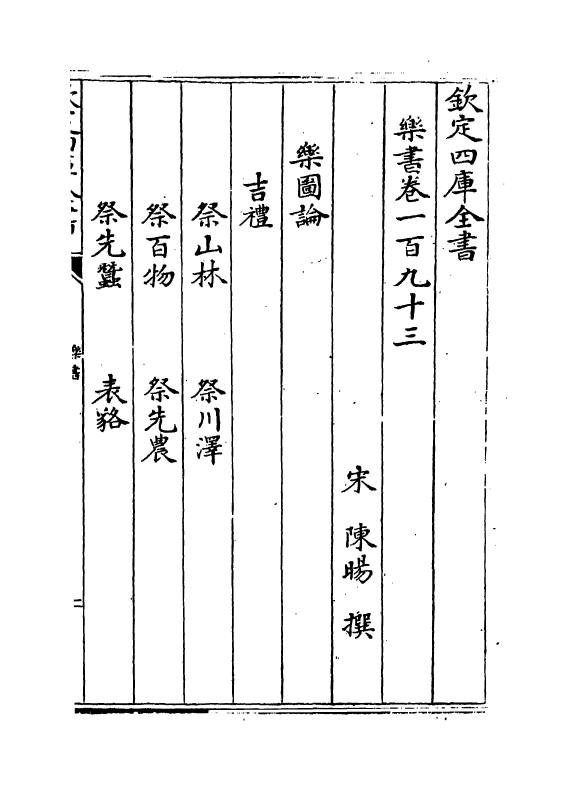 欽定四庫全書
樂書卷一百九十三
宋 陳暘 撰
樂圖論
吉禮
祭山林 祭川澤
祭百物 祭先農
祭先蠶 表貉
樂書